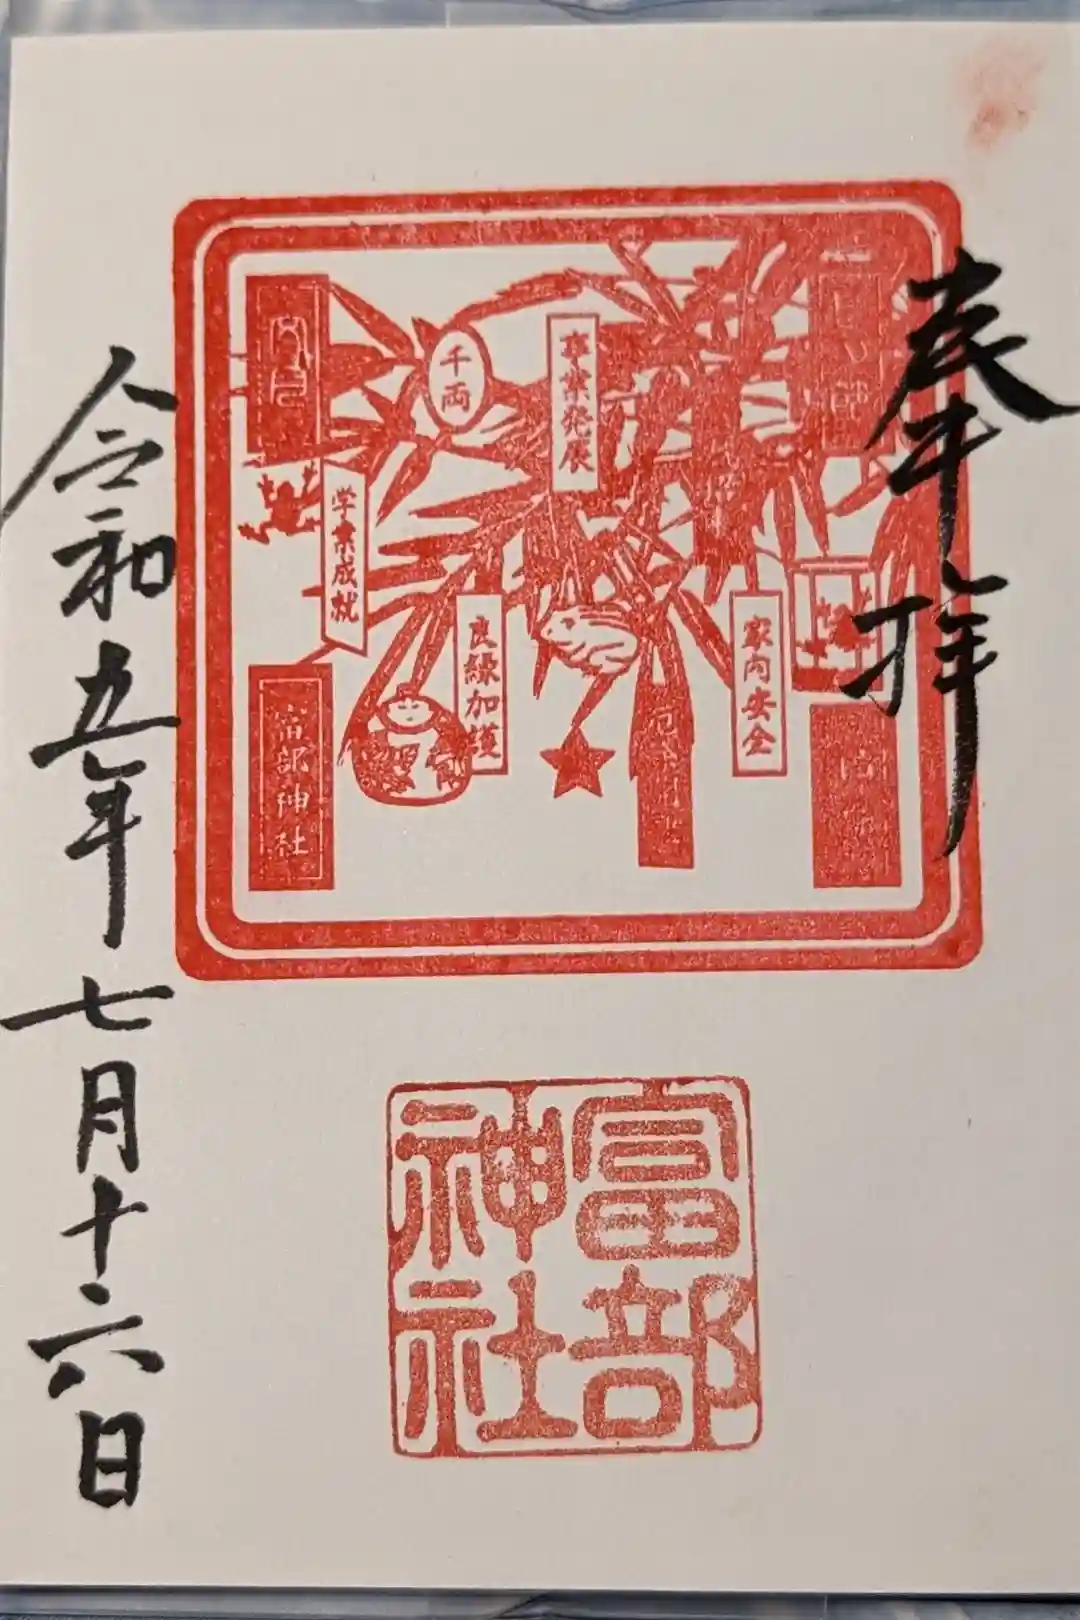 奉拝
家内安全
事業発展
良縁加護
千両
学業成就
富部神社
富部
神社
令和五年七月十六日